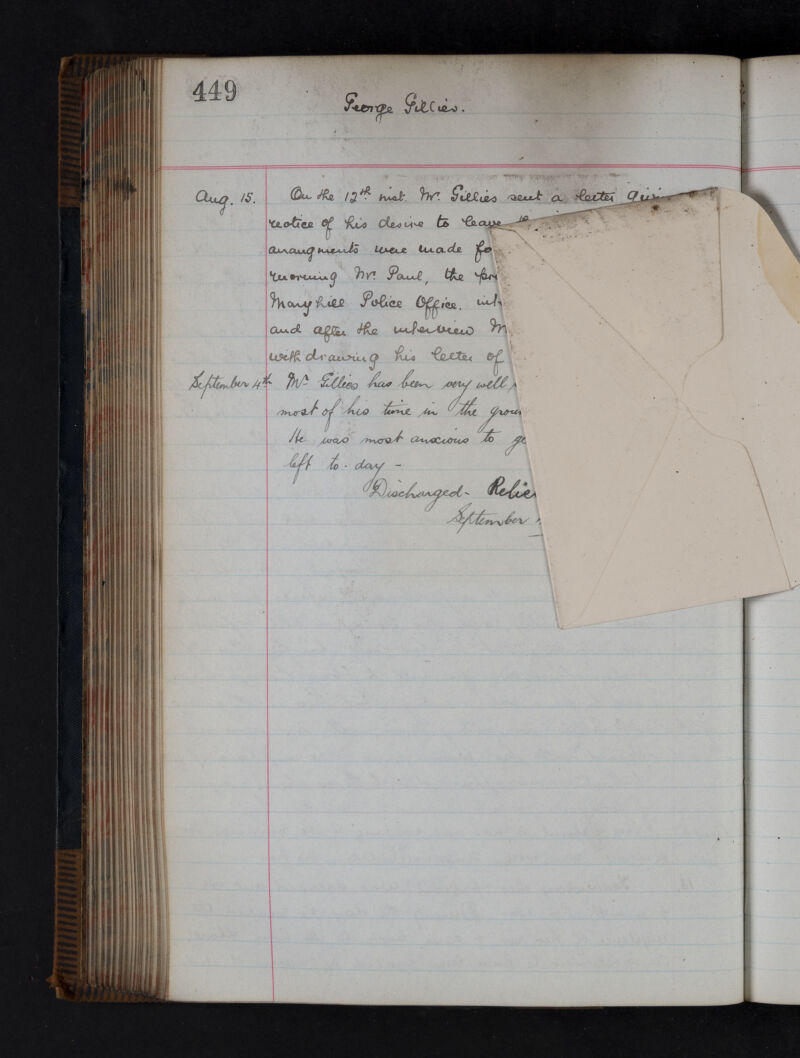 449
George Gillies.
Aug. 15. On the 12th inst. Mr. Gillies sent a letter
notice of his desire to leave
arrangments were made
morning Mr. Paul, the
Maryhill Police Office.
and after the interview
withdrawing his letter of
September 4th Mr. Gillies has been very well
most of his time in the
He was most anxious to
left to-day -
Discharged -
September